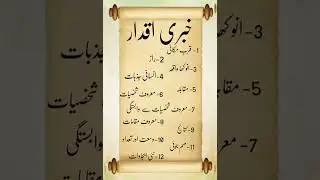 خبری اقدار
1- قرب مکانی
2- راز
3- انوکھا واقعہ
4- انسانی جذبات
5- مقابلہ
6- معروف شخصیات
7- معروف شخصیات سے وابستگی
8- معروف مقامات
9- نتائج
10- وسعت اور تعداد
11- مہم جوئی
12- نئی ایجادات
3- انوکھ
جذبات
5- مقا
شخصیات
7- معرو
وابستگی